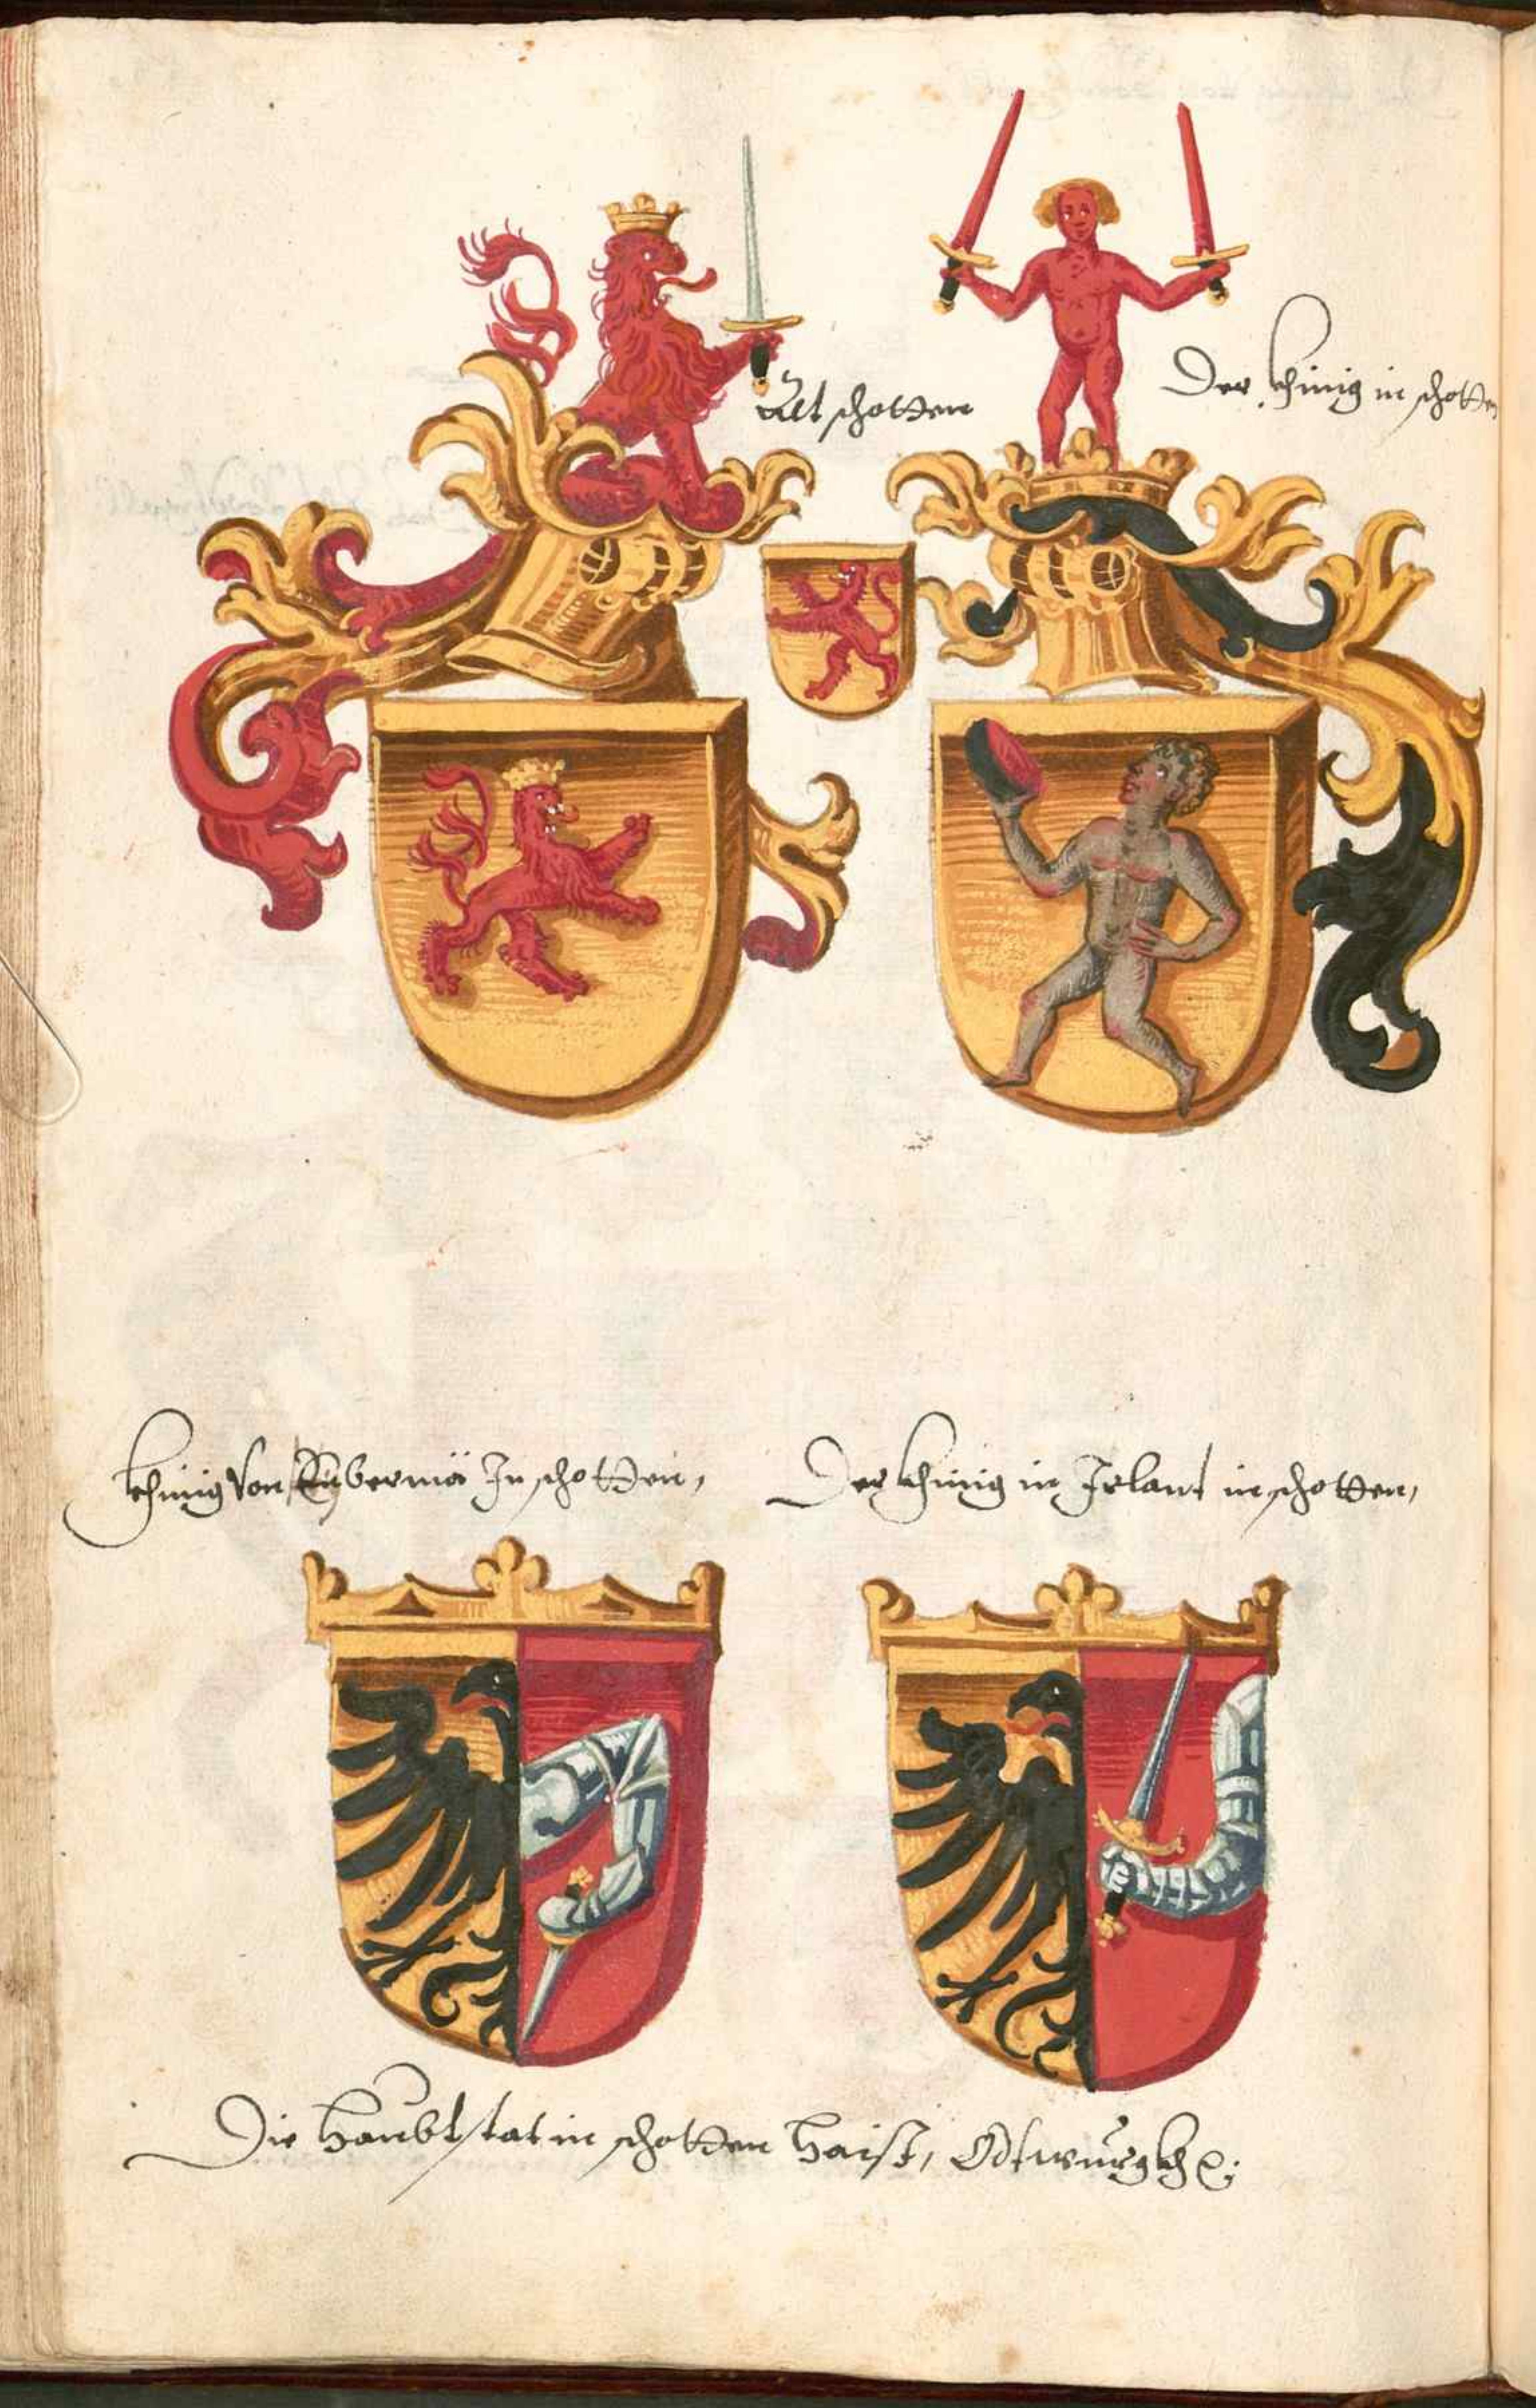 Alt schotten
Der khinig in schotten
khinig von in schotten,
Der khinig in Irlant in schotten,
Die haubtstat in schotten haist,